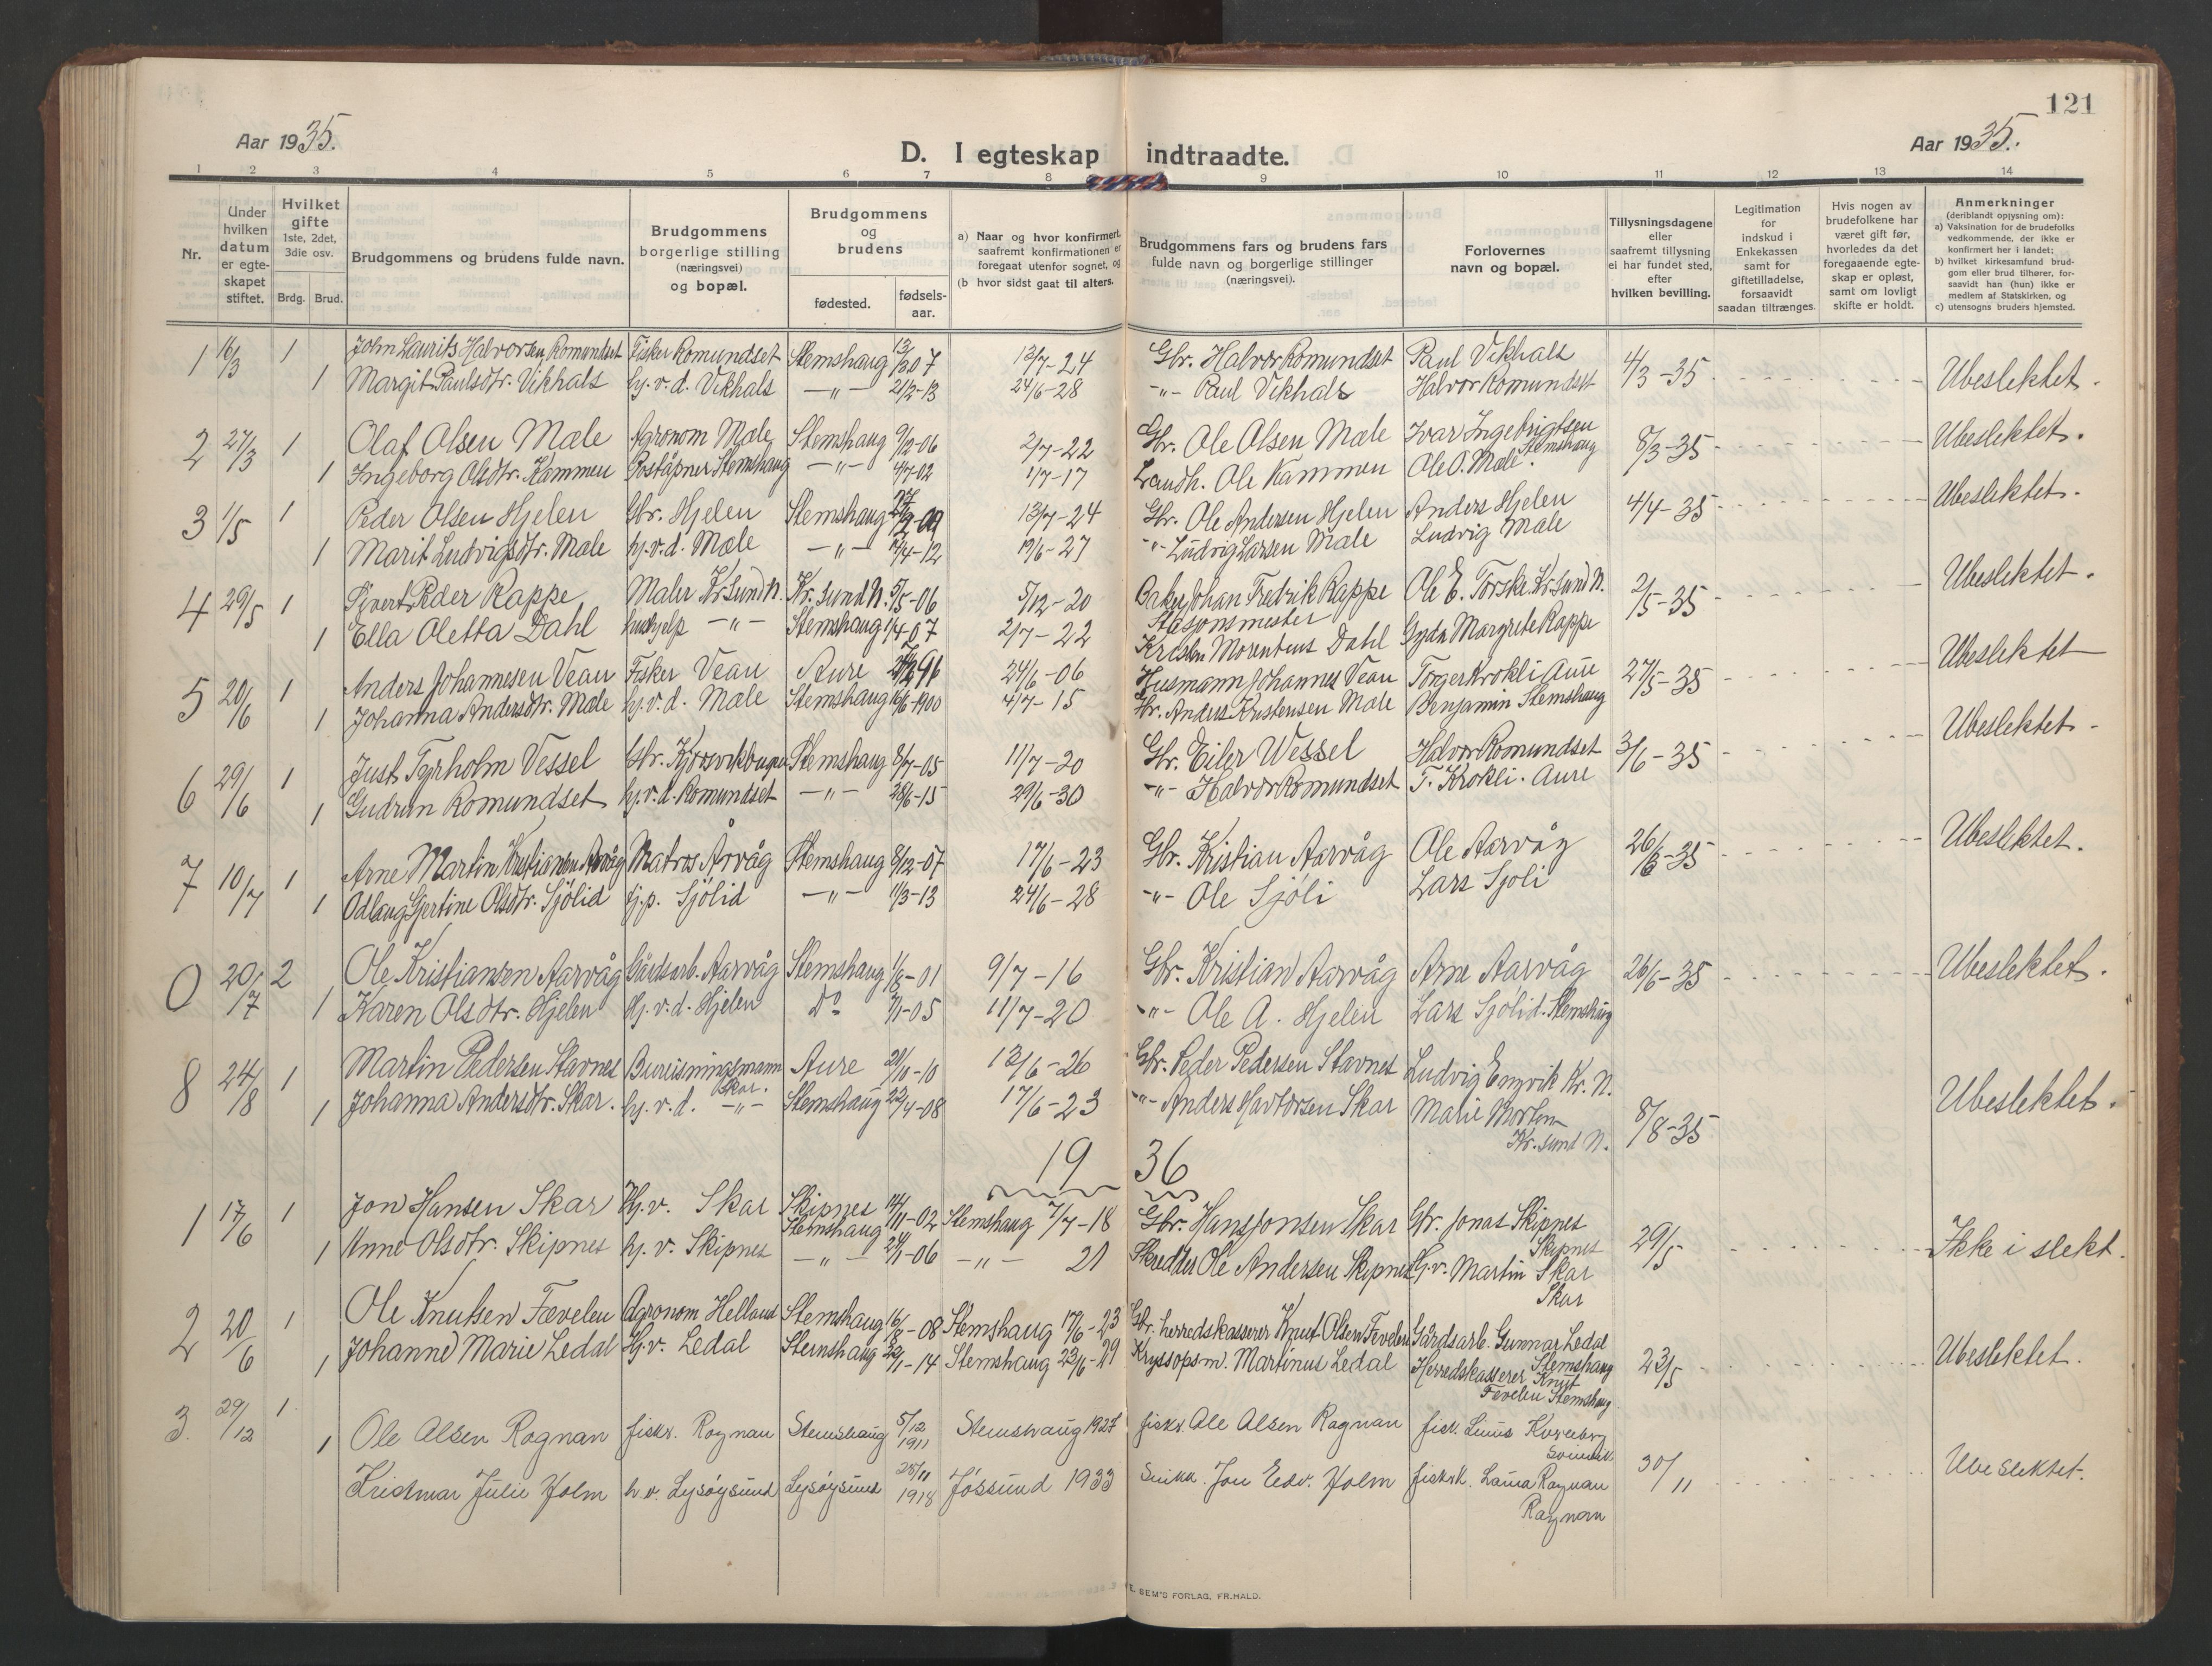 121
Aar 1935.
Aar 1935.
D. I egteskap indtraadte.
1 2 3 4 5 6 7 8 9 10 11 12 13 14
Nr.
Under hvilken datum er egteskapet stiftet.
Hvilket gifte 1ste, 2det, 3die osv.
Brdg. Brud.
Brudgommens og brudens fulde navn.
Brudgommens borgerlige stilling (næringsvei) og bopæl.
Brudgommens og brudens
fødested.
fødsels-aar.
a) Naar og hvor konfirmert, saafremt konfirmationen er foregaat utenfor sognet, og
(b hvor sidst gaat til alters.
Brudgommens fars og brudens fars fulde navn og borgerlige stillinger (næringsvei).
Forlovernes navn og bopæl.
Tillysningsdagene eller saafremt tillysning ei har fundet sted, efter hvilken bevilling.
Legitimation for indskud i Enkekassen samt for giftetilladelse, forsaavidt saadan tiltrænges.
Hvis nogen av brudefolkene har været gift før, hvorledes da det foregaaende egteskap er opløst, samt om lovligt skifte er holdt.
Anmerkninger (deriblandt opjysning om):
a) Vaksination for de brudefolks vedkommende, der ikke er konfirmert her i landet;
b) hvilket kirkesamfund brudgom eller brud tilhører, forsaavidt han (hun) ikke er medlem af Statskirken, og
c) utensogns bruders hjemsted.
1 16/3 1 John Laurits Halvorsen Romundset Fisker Romundset Stemshaug 07 13/7-24 Gbr. Halvor Romundset Paul Vikhals 4/3-35 Ubeslektet.
1 Margit Paulsdtr. Vikhals hj. v. d. Vikhals -"- 21/2-13 24/6-28 -"- Paul Vikhals Halvor Romundset
2 27/3 1 Olaf Olsen Mæle Agronom Mæle Stemshaug 9/12-06 2/7-22 Gbr. Ole Olsen Mæle Ivar Ingebrigtsen Stemshaug 8/3-35 Ubeslektet.
1 Ingeborg Olsdtr. Kammen Poståpner Stemshaug -"- 4/7-02 1/7-17 Landh. Ole Kammen Ole O. Mæle.
3 1/5 1 Peder Olsen Hjelen Gbr. Hjelen Stemshaug 13/7-24 Gbr. Ole Andersen Hjelen Anders Hjelen 4/4-35 Ubeslektet.
1 Marit Ludvigsdtr. Mæle hj. v. d. Mæle -"- 4-12 19/6-27 -"- Ludvig Larsen Mæle Ludvig Mæle
4 29/5 1 Sivert Peder Rappe Maler Kr.sund N. Kr.sund N. 5/5-06 5/12-20 Baker Johan Fredrik Rappe Ole E. Torske. Kr.sund N. 2/5-35 Ubeslektet.
1 Ella Oletta Dahl hushjelp -"- Stemshaug 1/4-07 2/7-22 Stasjonsmester Kristen Morentius Dahl Gyda Margrete Rappe
5 20/6 1 Anders Johannesen Vean Fisker Vean Aure 96 24/6-06 Husmann Johannes Vean Torger Krokli Aure 27/5-35 Ubeslektet
1 Johanna Andersdtr. Mæle hj. v. d. Mæle Stemshaug 16/6-1900 4/7-15 Gbr. Anders Kristensen Mæle Benjamin Stemshaug
6 29/6 1 Just Tyrholm Vessel Gbr. Stemshaug 8/7-05 11/7-20 Gbr. Eiler Wessel Halvor Romundset 3/6-35 Ubeslektet.
1 Gudrun Romundset hj. v. d. Romundset -"- 28/6-15 29/6-30 -"- Halvor Romundset T. Krokli. Aure
7 10/7 1 Arne Martin Kristiansen Arvåg Matros Årvåg Stemshaug 8/12-07 17/6-23 Gbr. Kristian Aarvåg Ole Aarvåg 26/6-35 Ubeslektet.
1 Odlaug Gjertine Olsdtr. Sjölid hj. p. Sjölid -"- 11/3-13 24/6-28 -"- Ole Sjöli Lars Sjöli
0 20/7 2 Ole Kristiansen Aarvåg Gårdsarb. Aarvåg Stemshaug 1/8-01 9/7-16 Gbr. Kristian Aarvåg Arne Aarvåg 26/6-35 Ubeslektet.
1 Karen Olsdtr. Hjelen Hj. v. d. Hjelen Do 05 11/7-20 -"- Ole A. Hjelen Lars Sjölid. Stemshaug
8 24/8 1 Martin Pedersen Stavnes Bureisningsmann Skar. Aure 20/11-10 13/6-26 Gbr. Peder Pedersen Stavnes Ludvig Engvik Kr. N.
1 Johanna Andersdtr. Skar. hj. v. d. -"- Stemshaug 22/4-08 17/6-23 -"- Anders Skar Marie Kr.sund N. 8/8-35 Ubeslektet.
1936
1 17/6 1 Jon Hansen Skar Hj. v. Skar Skipnes Stemshaug 14/11-02 Stemshaug 7/7-18 Gbr. Hans Jonsen Skar Gbr. Jonas Skipnes Skipnes 29/5 Ikke i slekt.
1 Anne Olsdtr. Skipnes hj. v. Skipnes -"- 06 -"- 21 Skredder Ole Andersen Skipnes Hj. v. Martin Skar Skar
2 20/6 1 Ole Knutsen Fævelen Agronom Helland Stemshaug 16/8-08 Stemshaug 17/6-23 Gbr. herredskasserer Knut Olsen Fevelen Gårdsarb. Gunnar Ledal Stemshaug 23/5 Ubeslektet.
1 Johanne Marie Ledal Hj. v. Ledal Stemshaug 1-14 Stemshaug 23/6-29 Martinus Ledal Herredskasserer Knut Fevelen Stemshaug.
3. 29/12 1 Ole Olsen Rognan fisker. Rognan Stemshaug 5/12 1911 Stemshaug 1927 fisker Ole Olsen Rognan fisk. Linus 30/11 Ubeslektet.
1 Kristmar Julie Holm h. v. Lysøysund Lysøysund 25/11 1918 Jössund 1933 Snikk. Jon Edv. Holm Laura Rognan Rognan
E. SEM'S FORLAG, FR.HALD.